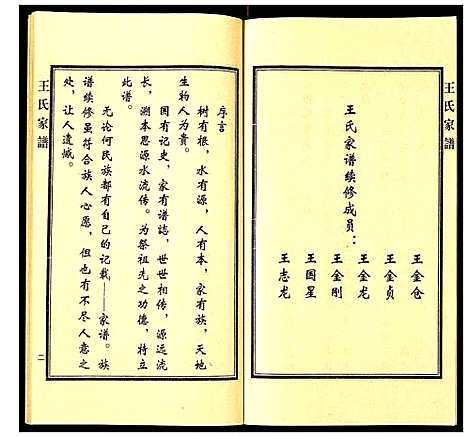 王氏家譜
王氏家谱续修成員：
王金仓
王金贞
王金龙
王金刚
王国星
王志龙
序言
树有根，水有源，人有本，家有族，天地
生物人为贵。
国有记史，家有谱誌，世世相传，源远流
长，溯本思源水流传。为祭祖先之功德，特立
此谱。
无论何民族都有自己的记载——家谱。族
谱续修虽符合族人心愿，但也有不尽人意之
处，让人遗憾。
王氏家譜
二